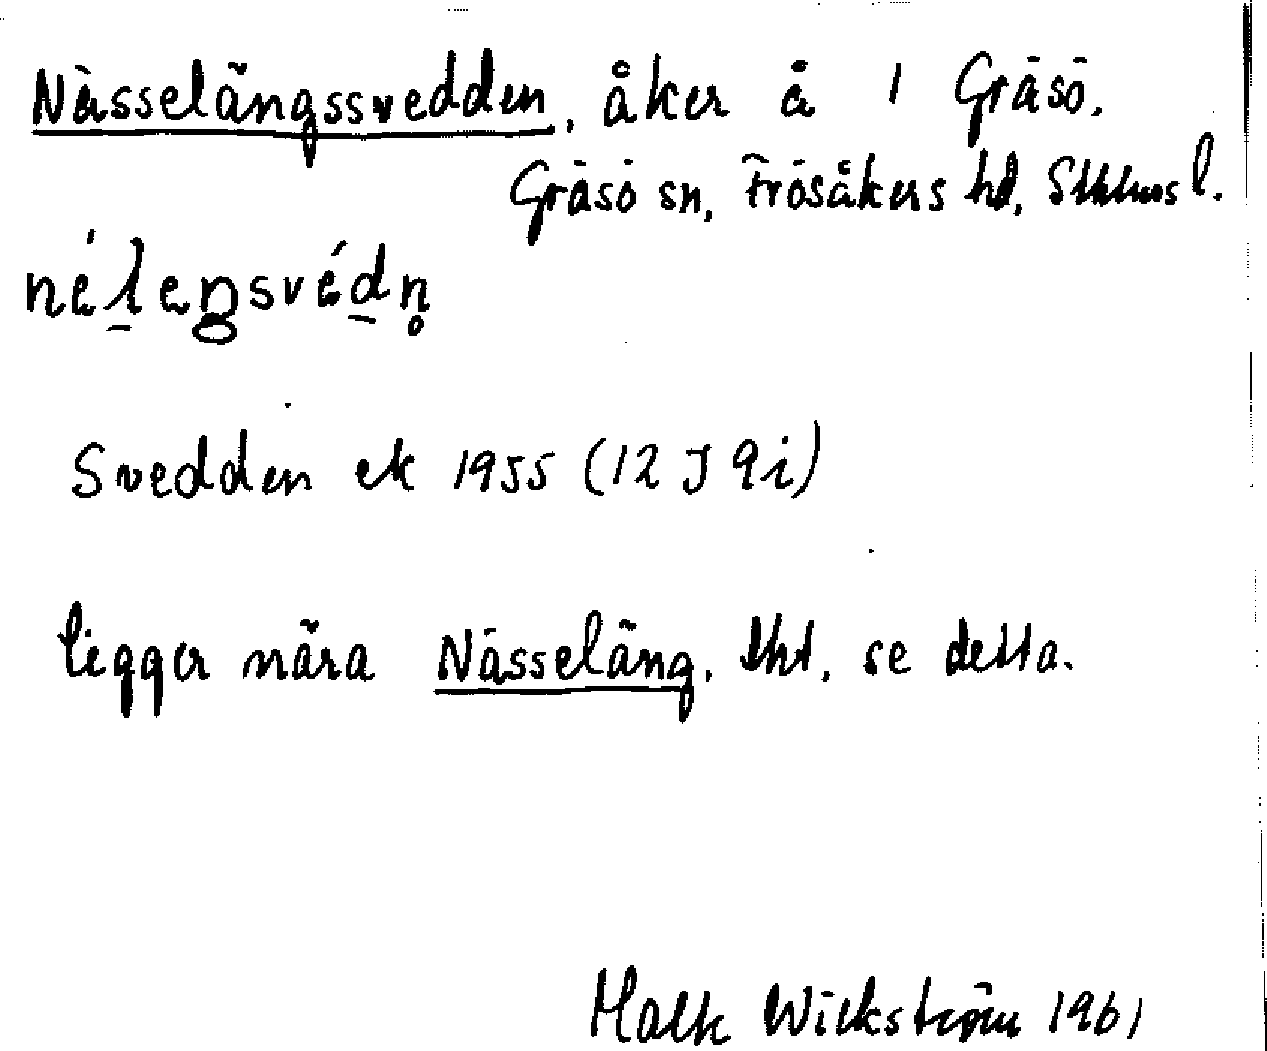 Nässelängssvedden, åker å 1 Gräsö.
Gräsö sn, Frösåkers hd, Sthlms l.
nélengsvédn̥
Svedden ek 1955 (12 J 9i)
ligger nära Nässeläng, tht, se detta.
Wickström 1961